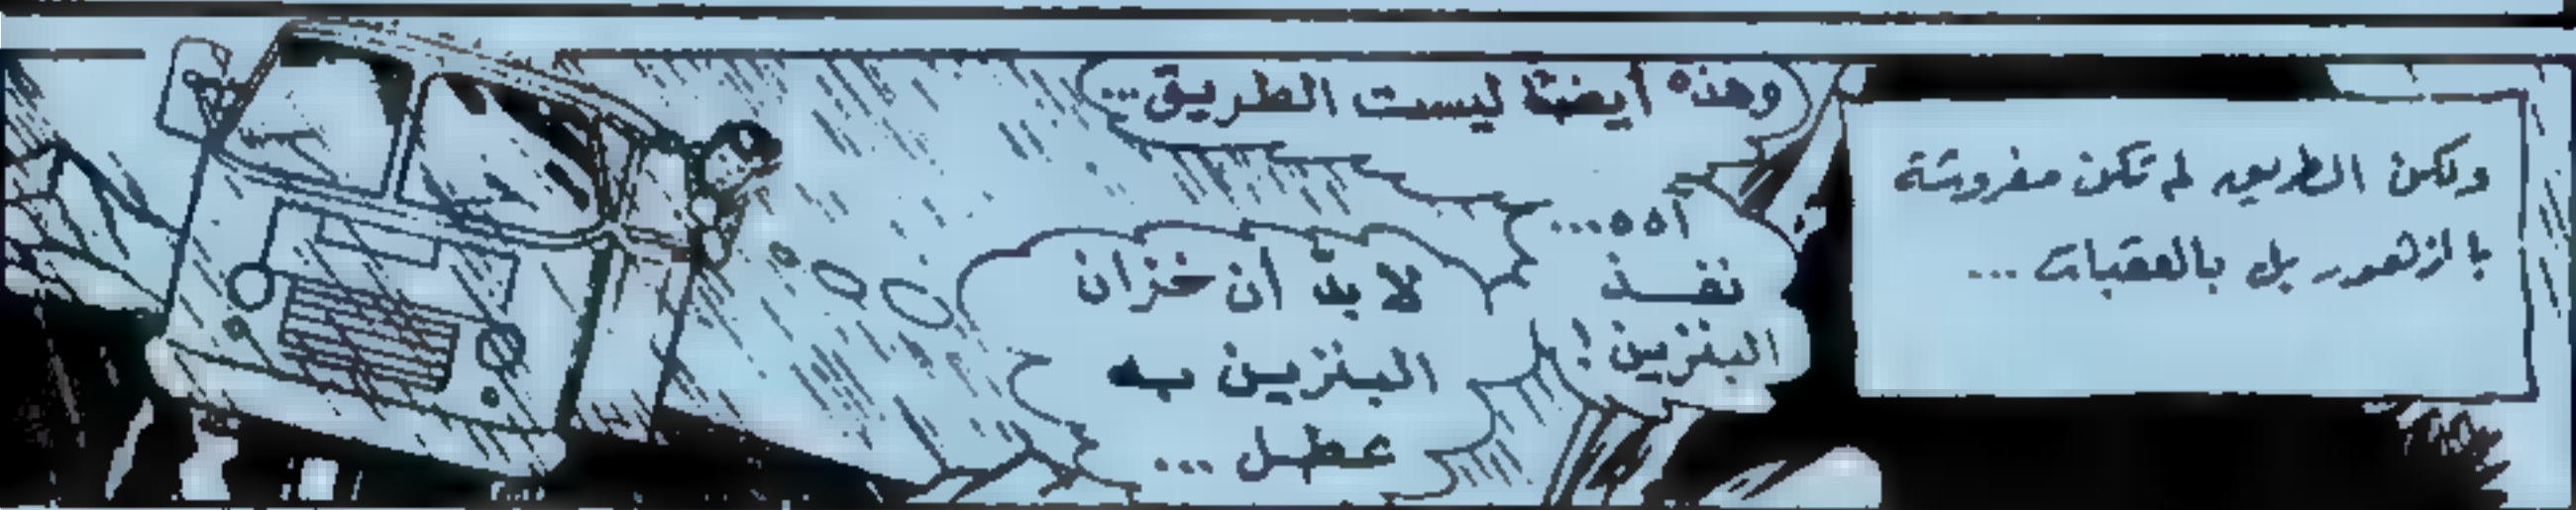 ولكن الطريق لم تكن مفروشة
بالزهور بل بالعقبات ...
وهذه أيضًا ليست الطريق...
ااه...
نفــذ
البنزين!
لا بدّ أن خزان
البنزين به
عطل ...